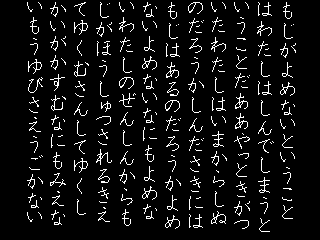 もじがよめないということ
はわたしはしんでしまうと
いうことだああやっときがつ
いたわたしはいまからしぬ
のだろうかしんださきには
もじはあるのだろうかよめ
ないよめないなにもよめな
いわたしのぜんしんからも
じがほうしゅつされるきえ
てゆくむさんしてゆくし
かいがかすむなにもみえな
いもうゆびさえうごかない